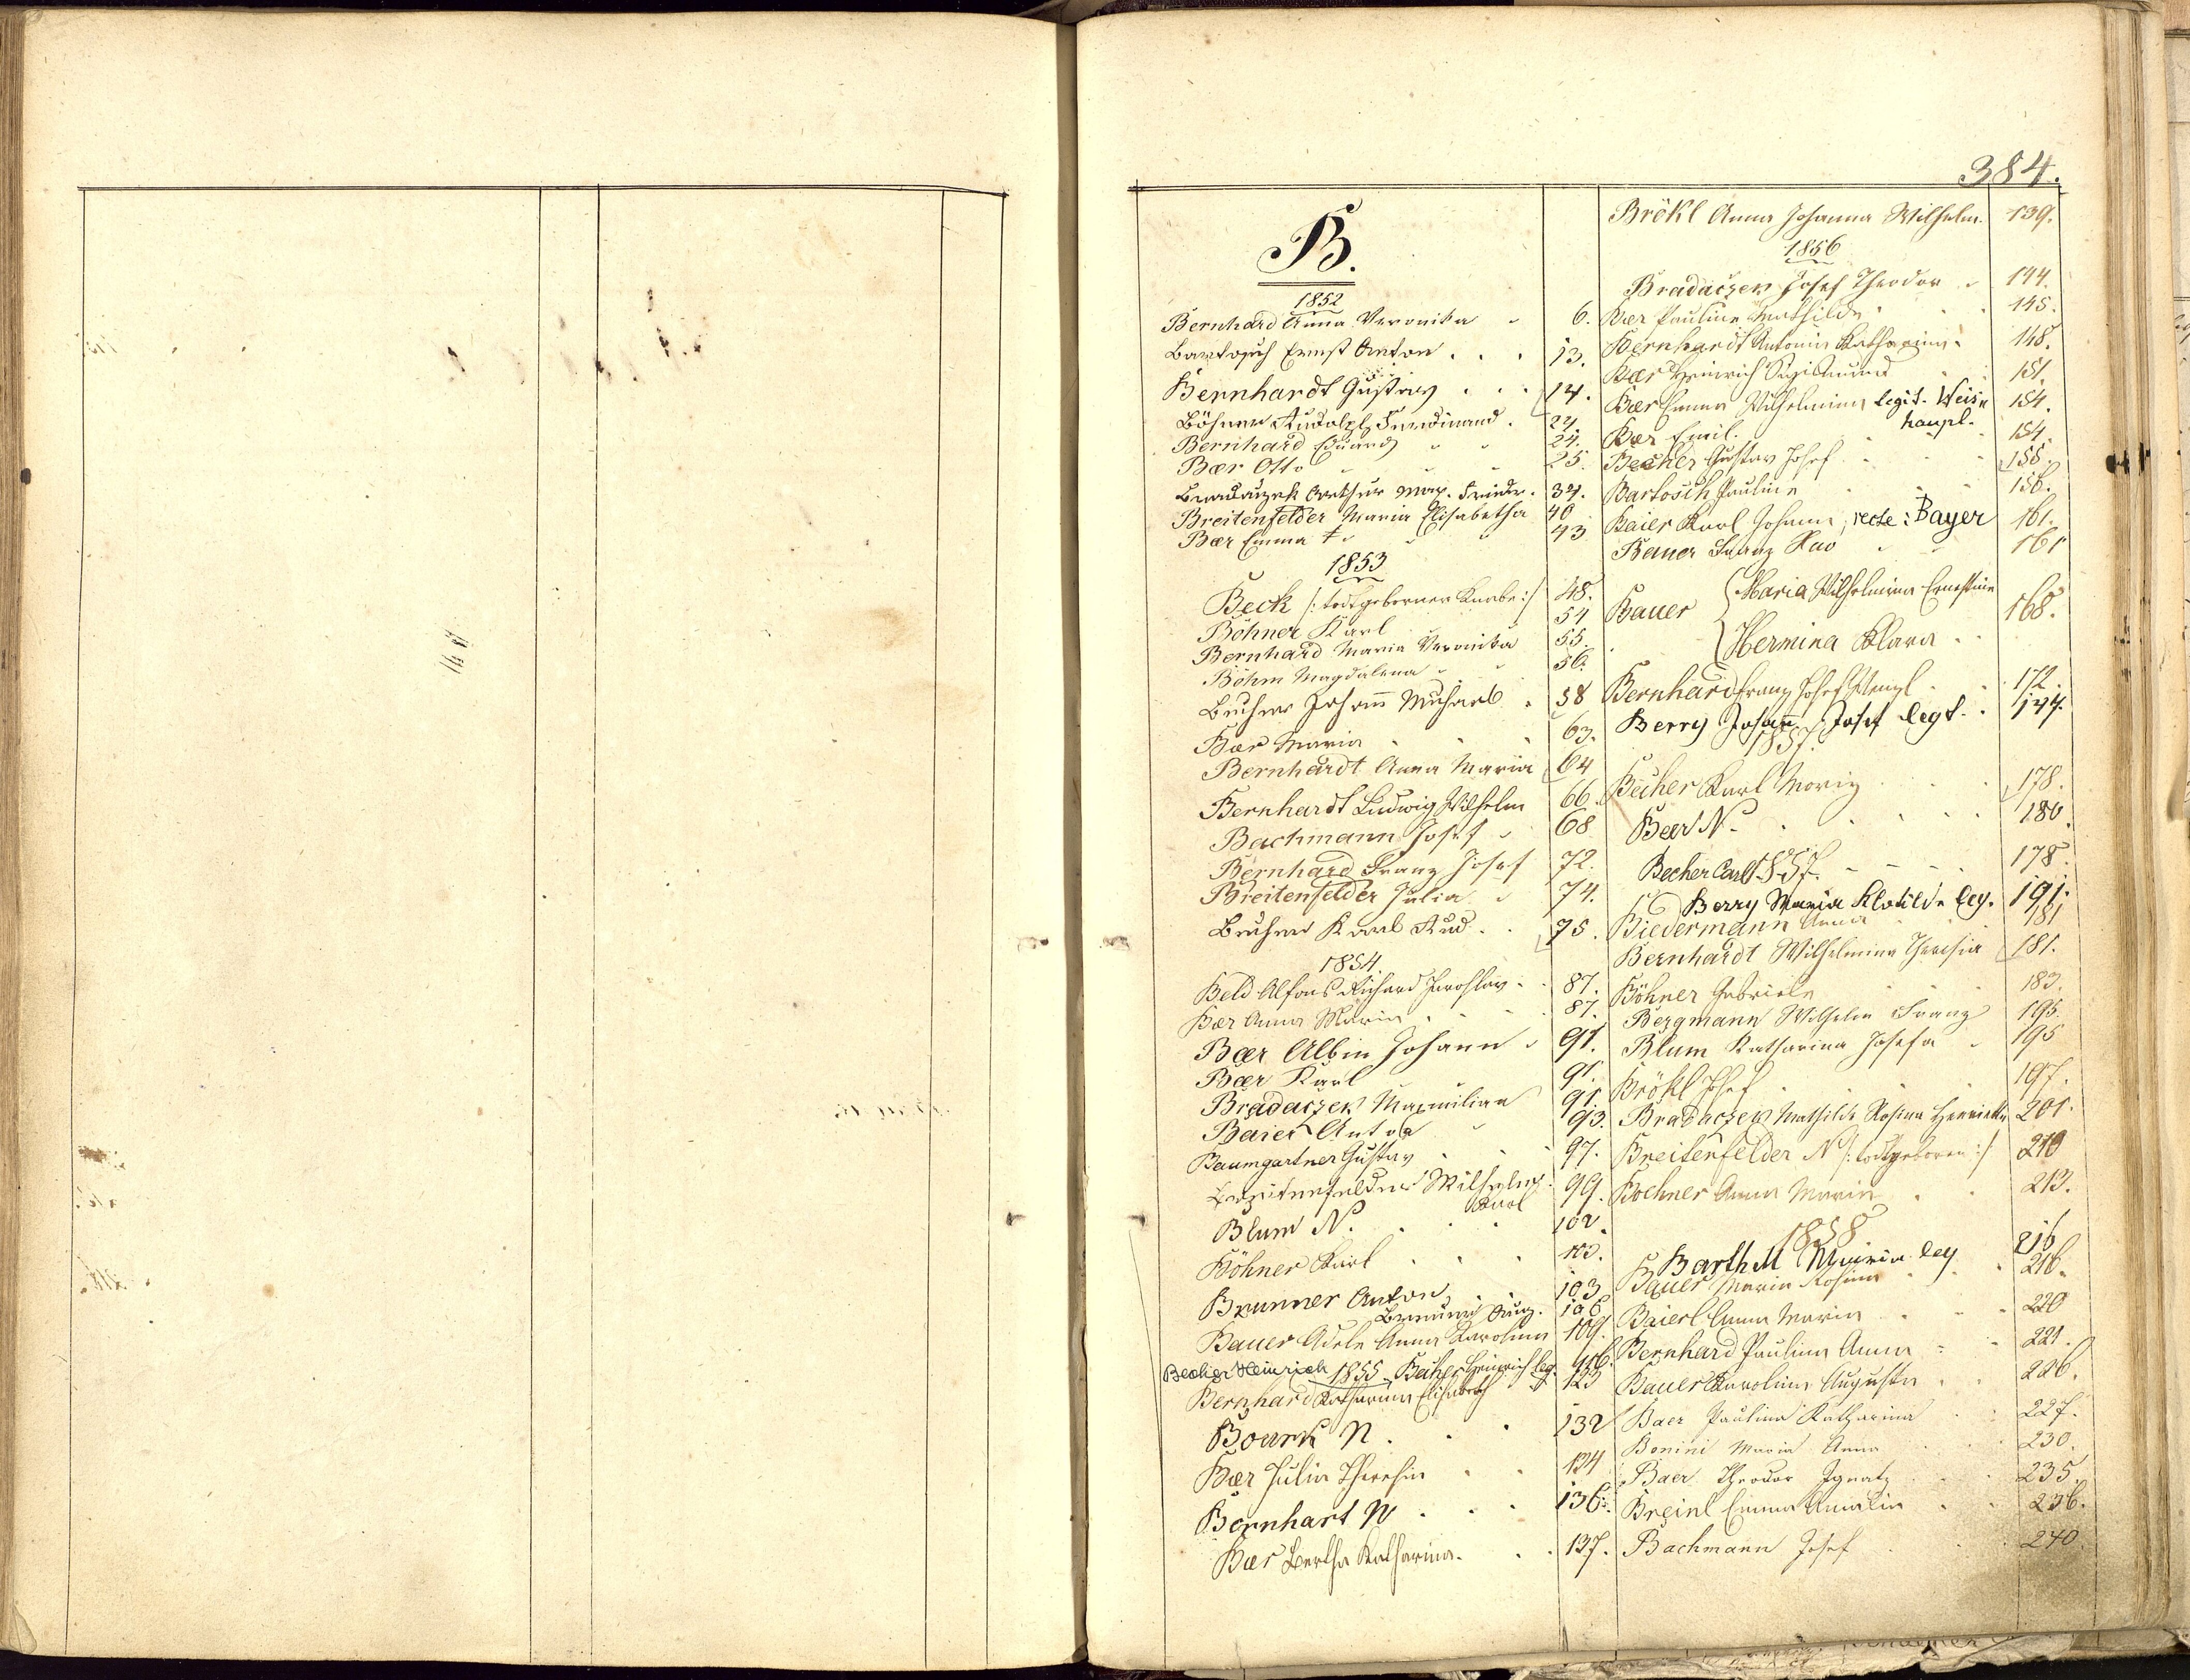 384.
B.
1852
Bernhard Anna Veronika 6.
Bartosch Ernst Anton . . . 13.
Bernhardt Gustav . . . 14.
Böhner Rudolph Ferdinand . 24.
Bernhard Eduard 24.
Bær Otto 25.
Bradaczek Arthur Max. Friedr. 34.
Breitenfelder Maria Elisabetha 40
Bær Emma † 43
1853
Beck /: todtgeborner Knabe :/ 48.
Böhner Karl 54
Bernhard Maria Veronika 55.
Böhm Magdalena 56.
Becher Johann Michael . 58
Bær Maria 63.
Bernhardt Anna Maria 64
Bernhardt Ludwig Wilhelm 66.
Bachmann Josef 68
Bernhard Franz Josef 72.
Breitenfelder Julia 74.
Becher Karl Rud. . 75.
1854
Beld Alfons Richard Jaroslav . 87.
Bær Anna Maria . . . 87.
Bær Albin Johann 91.
Bær Karl 91.
Bradaczek Maximilian 91.
Baier Anton 93.
Baumgartner Gustav 97.
Breitenfelder Wilhelm 99.
Karl
Blum N. . . . 102.
Böhner Karl . . . 103.
Brunner Anton 103
Aug. 106
Bauer Adele Anna Karolina 109.
Becher Heinrich 1855 Becher Heinrich leg. 116.
Bernhard Katharina Elisabeth 123
N. . . 132
Bær Julia Theresia . . 134
Bernhart N . . . 136.
Bær Bertha Katharina . . . 137.
Brökl Anna Johanna Wilhelm. 139.
1856
Bradaczek Josef Theodor 144.
Bær Pauline Mathilde 145.
Bernhardt Antonia Katharina 148.
Bær Heinrich Sigismund 151.
Bær Emma Wilhelmina legit. Weis= 154.
haupl.
Bær Emil 154
Becher Gustav Josef 155.
Bartosch Pauline 156.
Baier Karl Johann, recte: Bayer 161.
Bauer Franz 161
Bauer { Maria Wilhelmina Ernestine
168.
Hermina Klara . .
Bernhard Franz Josef Wenzl . . 172.
Berry Johann Josef legt. . 174.
1857.
Becher Karl Moriz . . . 178.
Bær N. . . . . 180.
Becher Carl 1857. – – – 178.
Berry Maria Klotilde leg. 191.
Biedermann Anna 181
Bernhardt Wilhelmine Theresia 181.
Böhner Gabriele 183.
Bergmann Wilhelm Franz 195.
Blum Katharina Josefa 195
Brökl Josef 197.
Bradaczek Mathilde Rosina Henriette 201.
Breitenfelder N /: todtgeboren :/ 210
Bochner Anna Maria . . 213.
1858
Barth M Maria leg 216
Bauer Maria Rosina 216.
Baierl Anna Maria 220
Bernhard Paulina Anna 221.
Bauer Karolina Augusta . . 226.
Baer Paulina Katharina 227.
Bonini Maria Anna 230.
Baer Theodor Ignatz 235.
Breinl Emma Amalia 236.
Bachmann Josef 240.